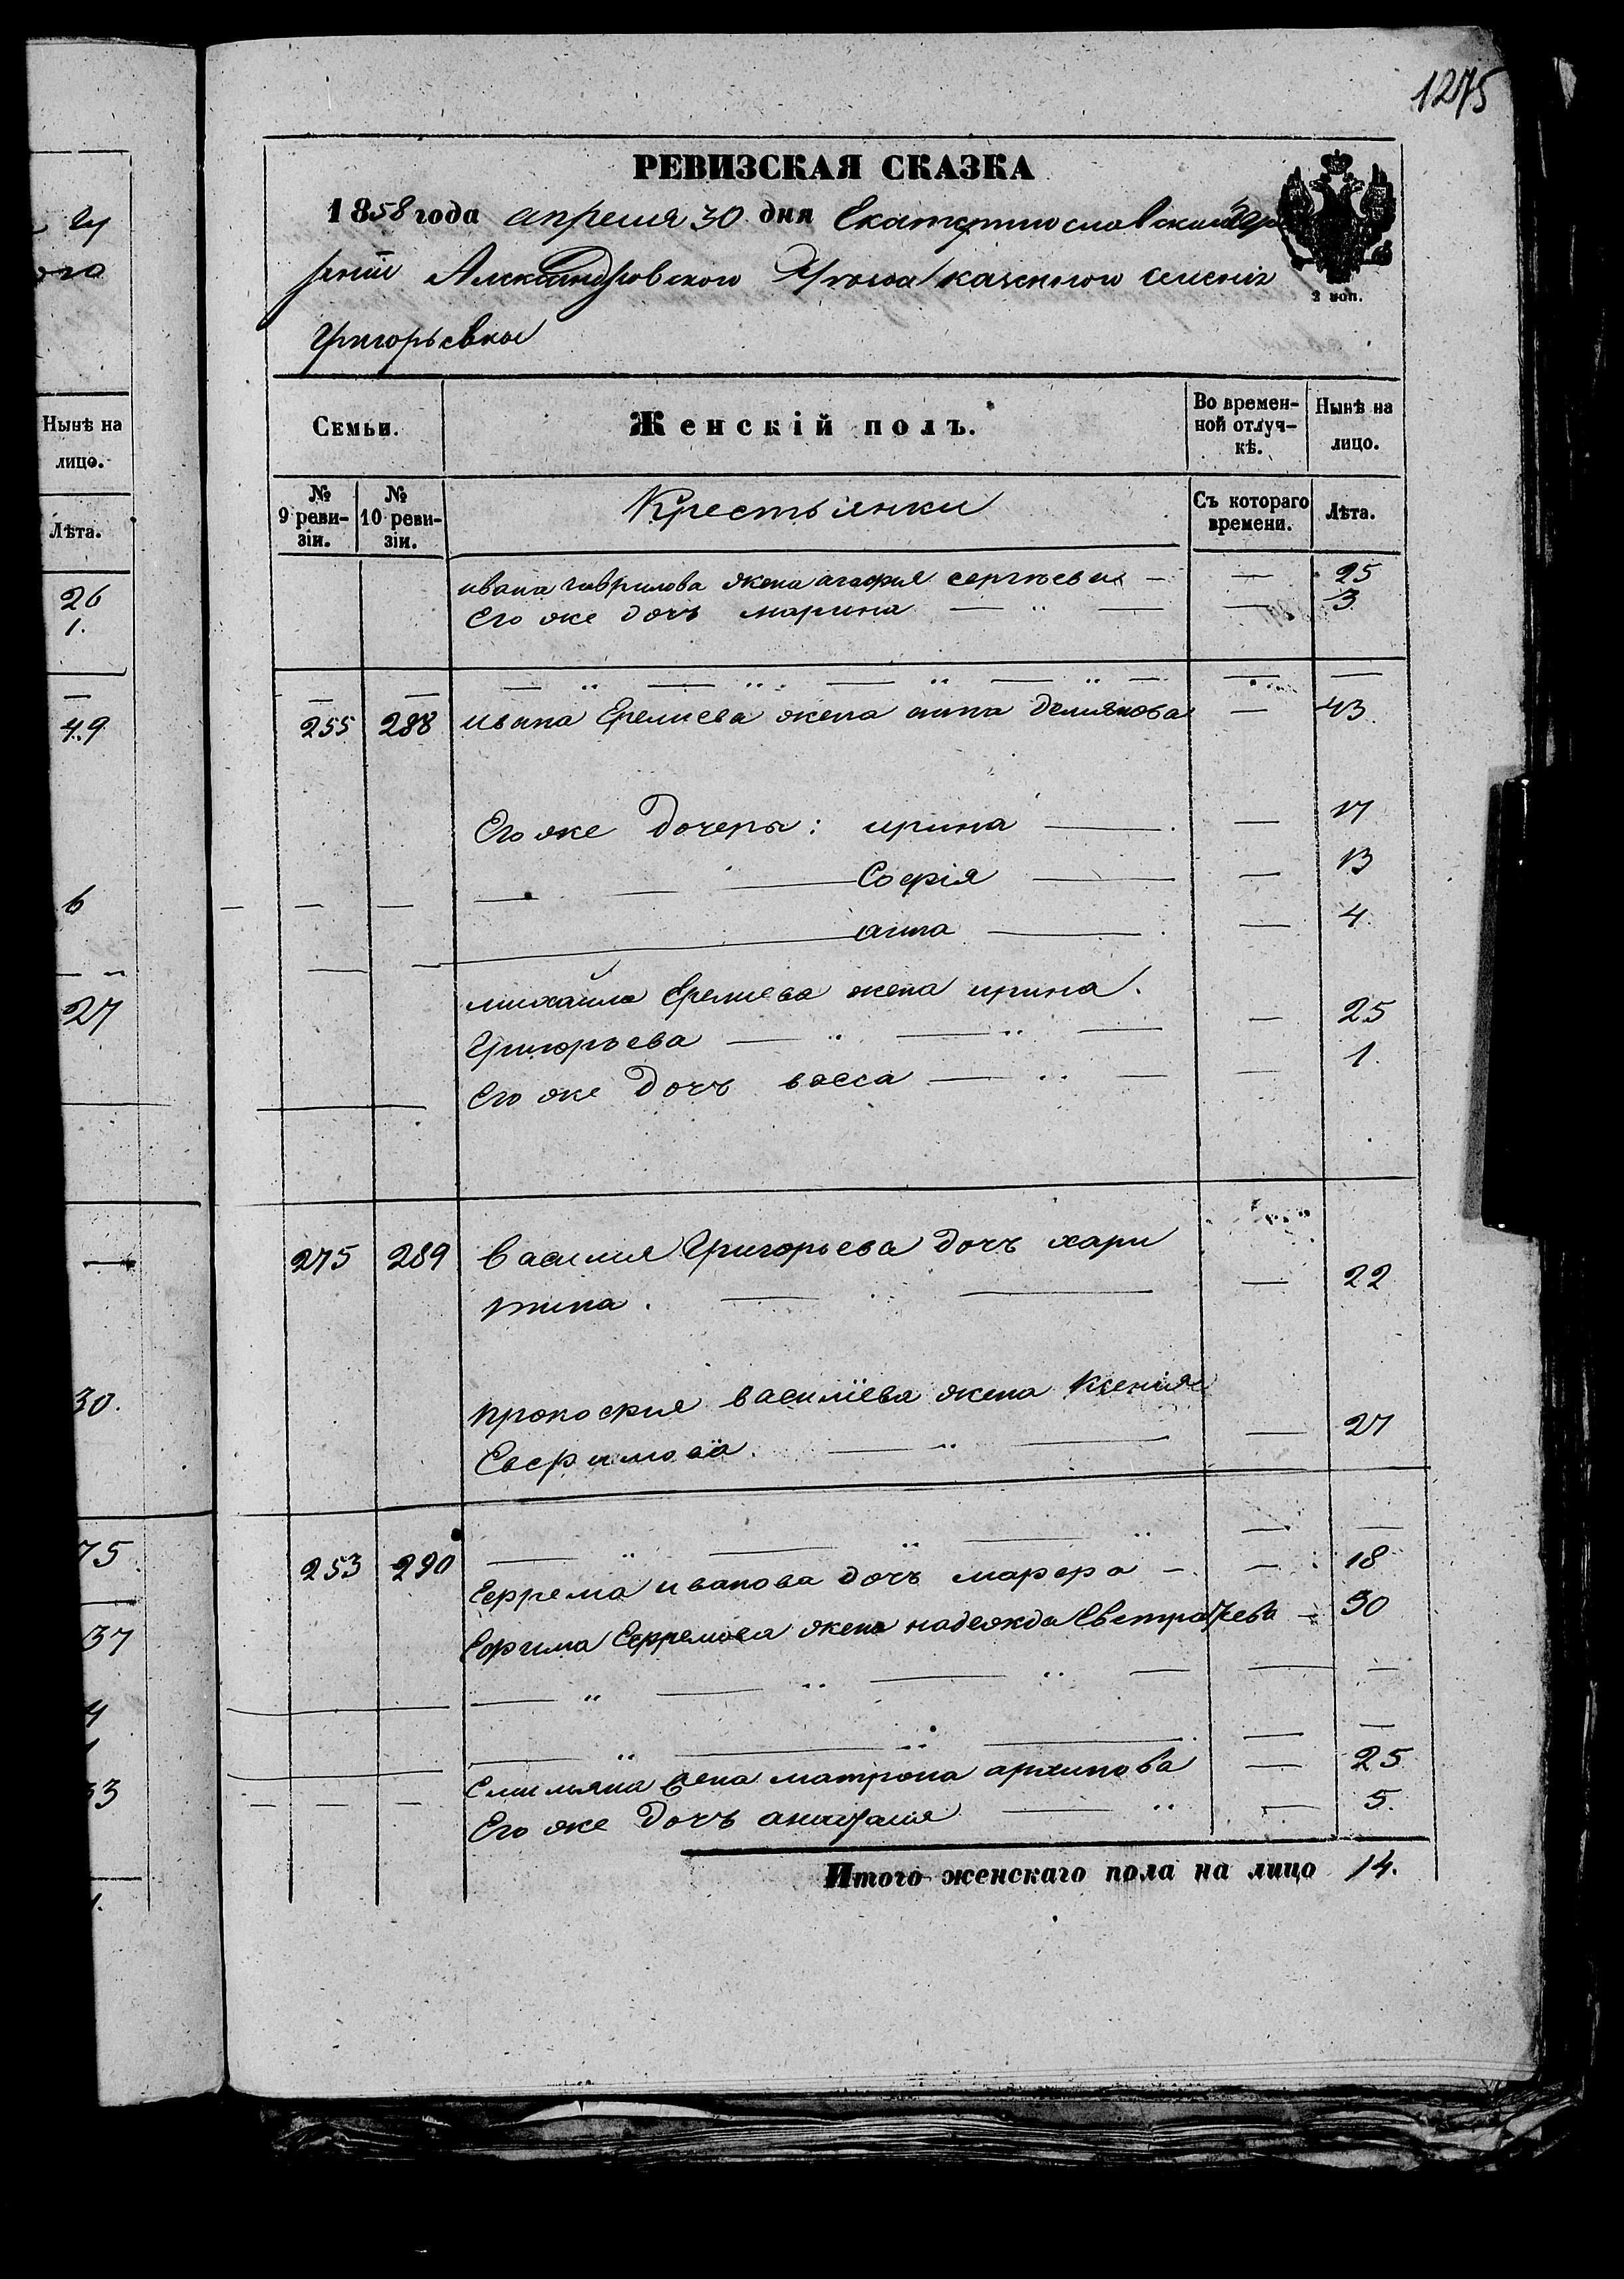 1275
РЕВИЗСКАЯ СКАЗКА
1858 года апреля 30 дня Екатеринославской Губе
рнии Александровского Уезда казенного селения
Григорьевки
2 коп.
Семьи.
Женскій полъ.
Во времен-
ной отлуч-
кѣ.
Нынѣ на
лицо.
№
9 реви-
зіи.
№
10 реви-
зіи.
Крестьянки
Съ котораго
времени.
Лѣта.
ивана гаврилова жена агафия сергѣева — — 25
Его же дочъ марина — — 3
255 288 ивана Еремиева жена анна демянова — 43
Его же дочеры: ирина — — 17
София — — 13
анна — — 4
михайла Еремиева жена ирина
Григорьева — — 25
Его же дочъ васса — — 1.
275 289 василия Григорьева дочъ хари
тина. — — 22
прокофия василїева жена Ксения
Евфимова. — — 27
253 290
Ефрема иванова дочъ марфа — — 18
Ефима Ефремова жена надежда Евстратьева — 30
Емильяна жена матрона архипова — 25
Его же дочъ — — 5.
Итого женскаго пола на лицо 14.
Нынѣ на
лицо.
Лѣта.
26
1.
49
6
27
30.
75
37
33